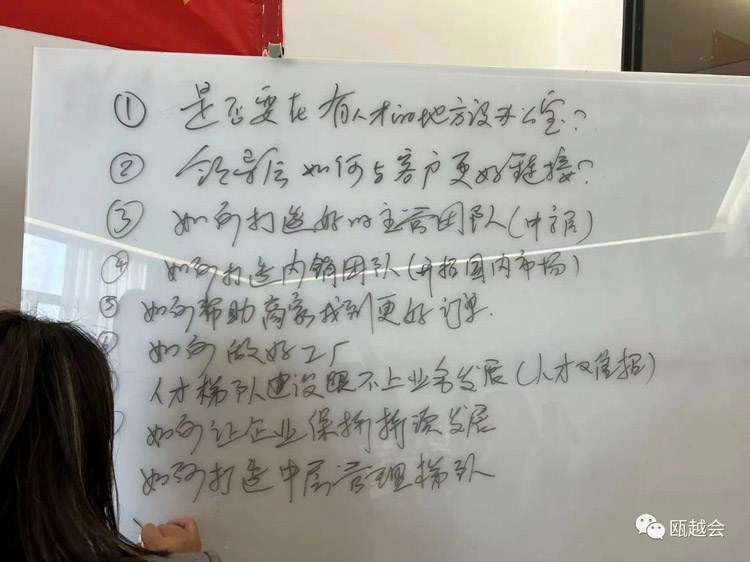 ① 是否要在有人才的地方设办公室?
② 如何与客户更好链接?
③ 如何打造好的主营团队(中层)
④ 如何打造内销团队(开拓国内市场)
⑤ 如何帮助商家找到更好订单.
如何做好工厂
人才梯队建设跟不上业务发展(人才难招)
如何让企业保持持续发展
如何打造中层管理梯队
瓯越会